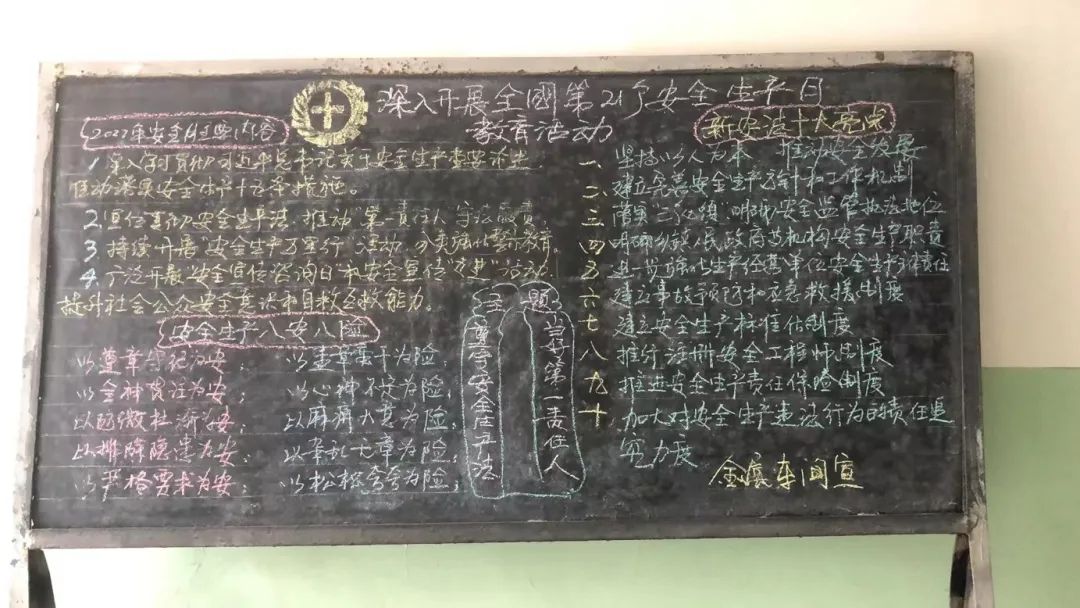 深入开展全國第21个安全生产月
教育活动
2022年安全月主要内容
1. 深入学习贯彻习近平总书记关于安全生产重要论述
推动落实安全生产十五条措施。
2. 宣传贯彻安全生产法,推动“第一责任人”守法履责
3. 持续开展“安全生产万里行”活动,强化警示教育。
4. 广泛开展“安全宣传咨询日”和安全宣传“五进”活动
提升社会公众安全意识和自救互救能力。
安全生产八安八险
以遵章守纪为安, 以违章蛮干为险,
以全神贯注为安; 以心神不定为险,
以防微杜渐为安 以麻痹大意为险,
以排除隐患为安, 以杂乱无章为险,
以严格要求为安; 以松松垮垮为险;
主题
遵守安全生产法
当好第一责任人
新安法十大亮点
一、坚持以人为本 推动安全发展
二、建立完善安全生产方针和工作机制
三 落实“三必须”明确安全监管执法地位
四 明确乡镇人民政府 机构安全生产职责
五 进一步强化生产经营单位安全生产主体责任
六 建立事故预防和应急救援制度
七 建立安全生产标准化制度
八 推行注册安全工程师制度
九 推进安全生产责任保险制度
十 加大对安全生产违法行为的责任追
究力度
金属车间宣